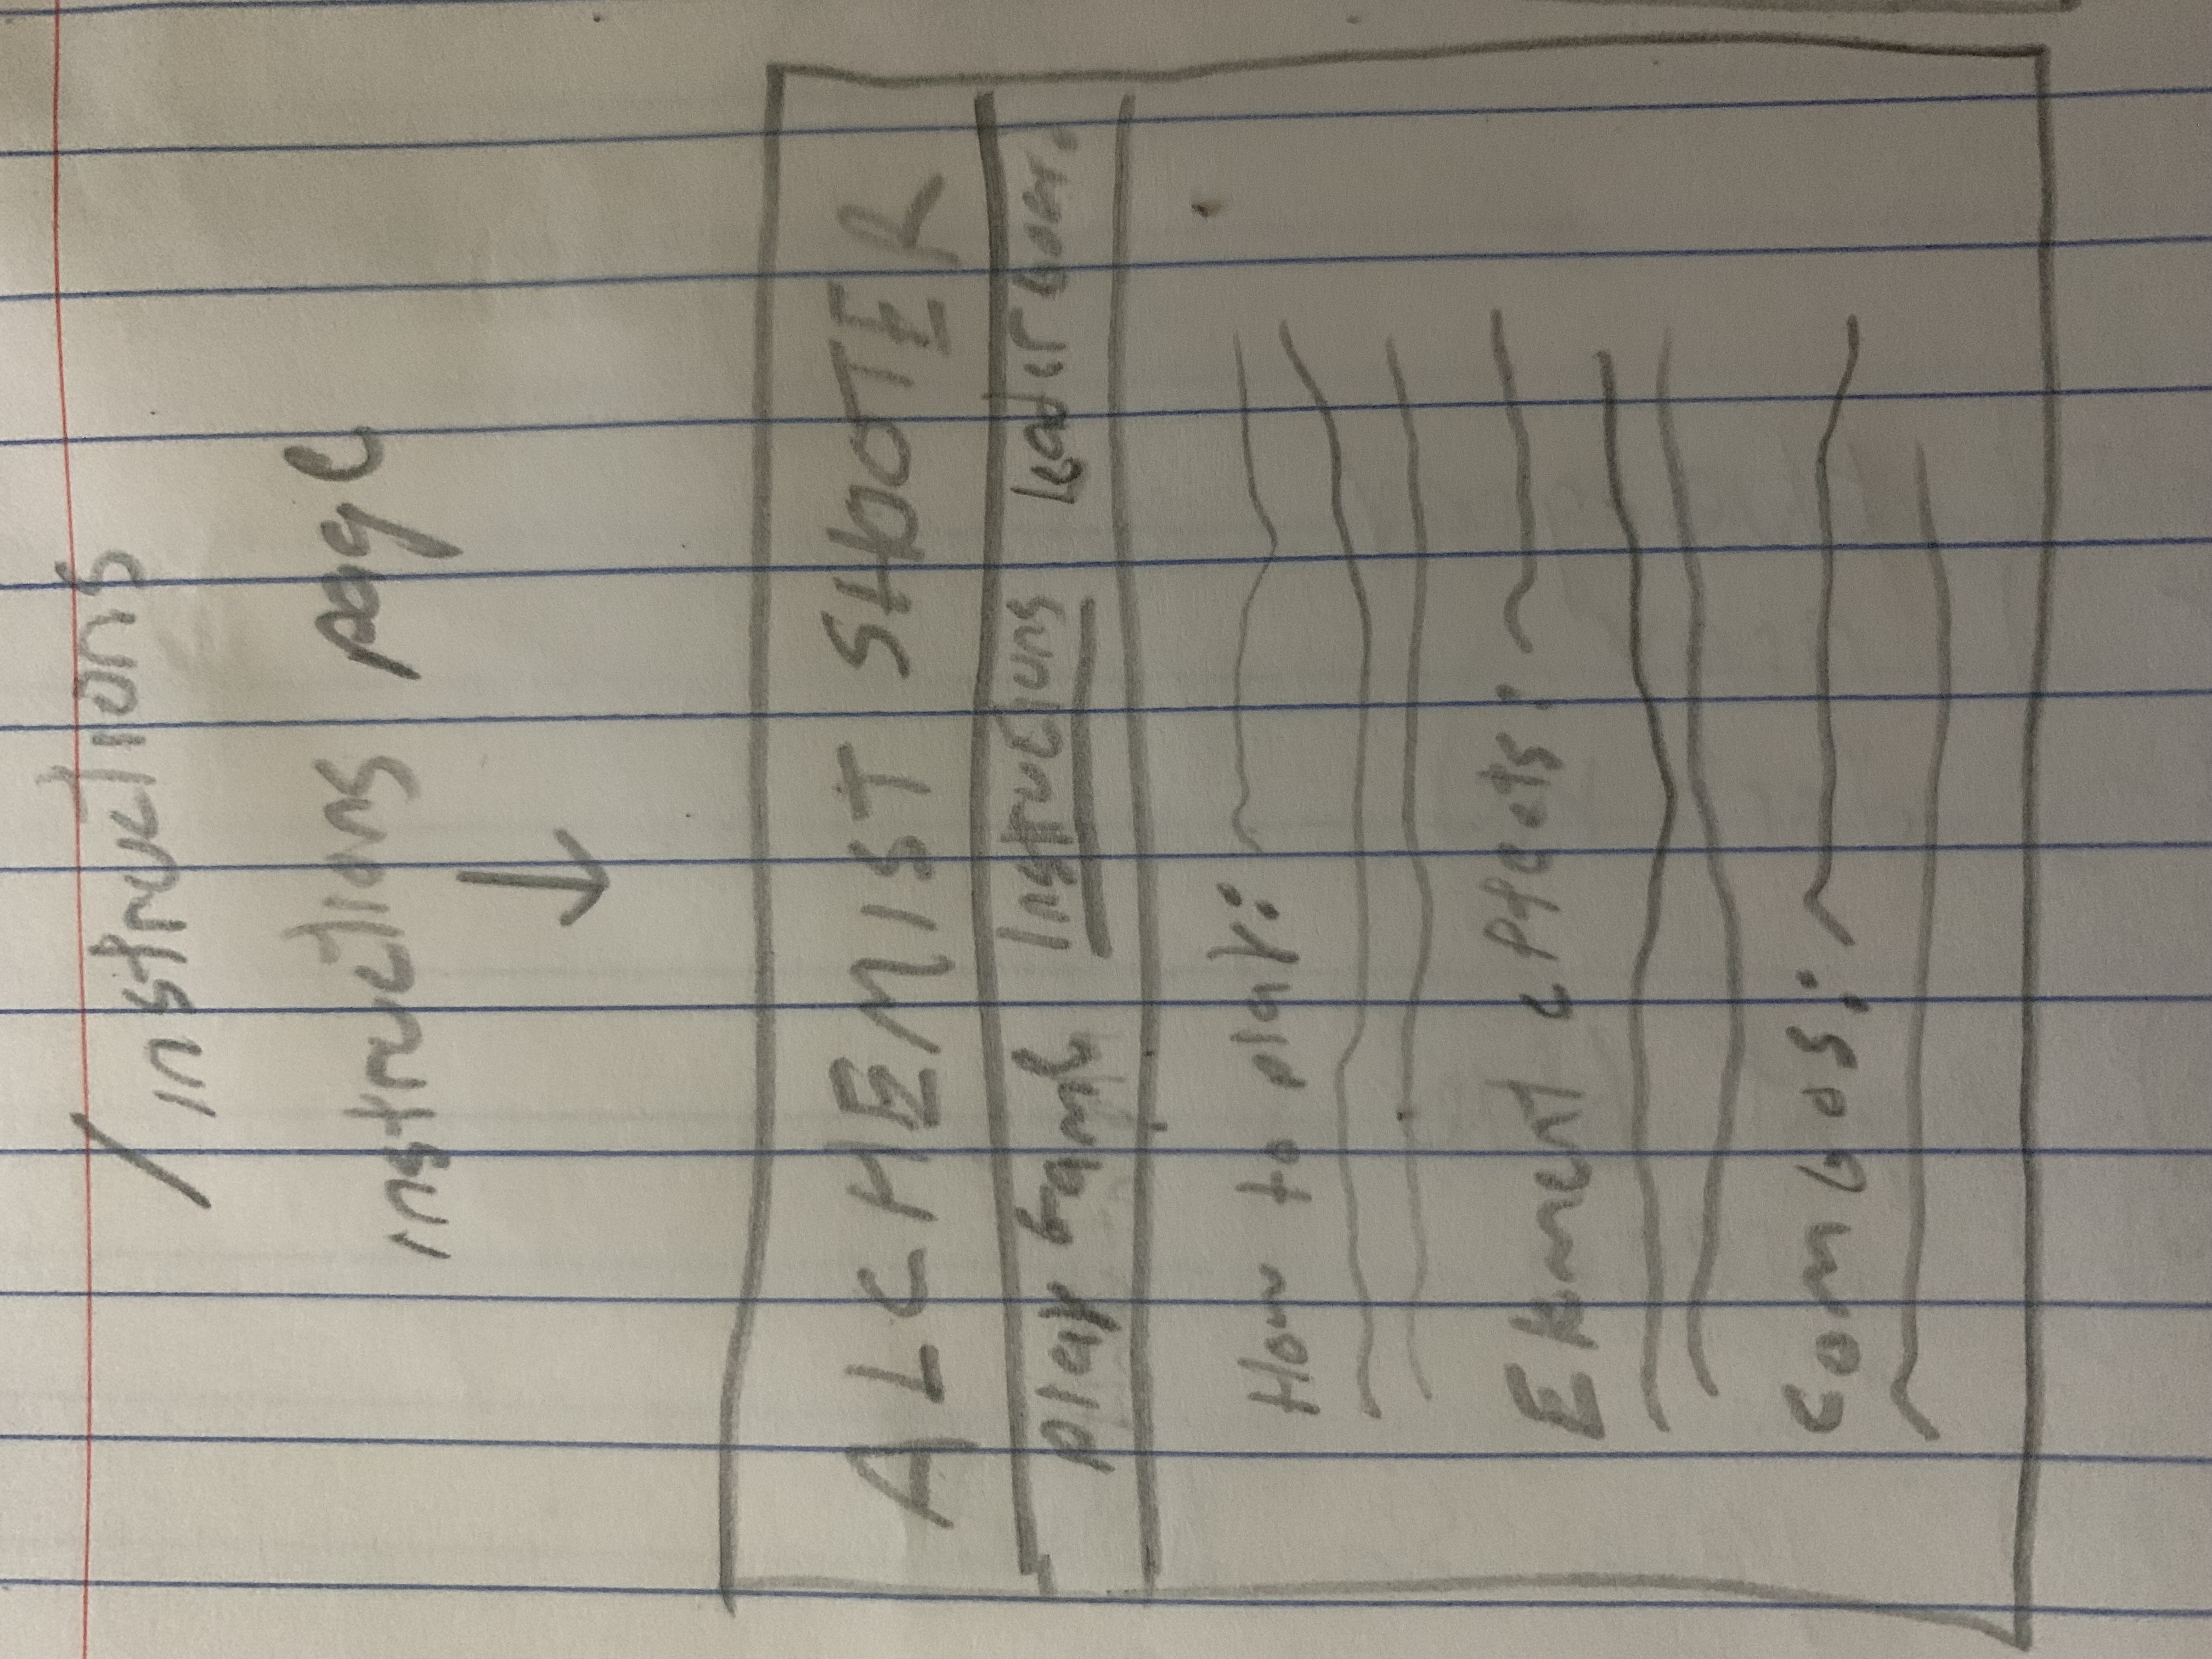 /instructions
instructions page
ALCHEMIST SHOOTER
play Game Instructions leaderboard
How to play:
Element effects:
Combos: